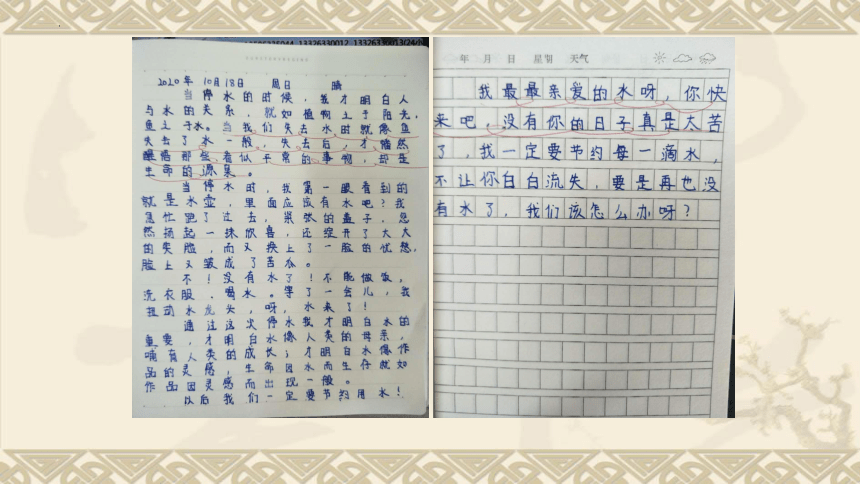 13326330012 13326330013(24小
2020年 10月18日 周日 晴
当停水的时候，我才明白人
与水的关系，就如植物上于阳光，
鱼上于水。当我们失去水时就像鱼
失去了水一般，失去后，才幡然
醒悟那些看似平常的事物，却是
生命的源泉。
当停水时，我第一眼看到的
就是水壶，里面应该有水吧？我
急忙跑了过去，紧张的盖子，忽
然扬起一抹欣喜，还绽开了大大
的笑脸，而又换上了一脸的忧愁，
脸上又皱成了苦瓜。
不！没有水了！不能做饭，
洗衣服、喝水。等了一会儿，我
扭动水龙头，呀，水来了！
通过这次停水我才明白水的
重要，才明白水像人类的母亲，
哺育人类的成长；才明白水像作
品的灵感，生命因水而生存就如
作品因灵感而出现一般。
以后我们一定要节约用水！
年 月 日 星期 天气
我最最亲爱的水呀，你快
来吧，没有你的日子真是太苦
了，我一定要节约每一滴水，
不让你白白流失，要是再也没
有水了，我们该怎么办呀？